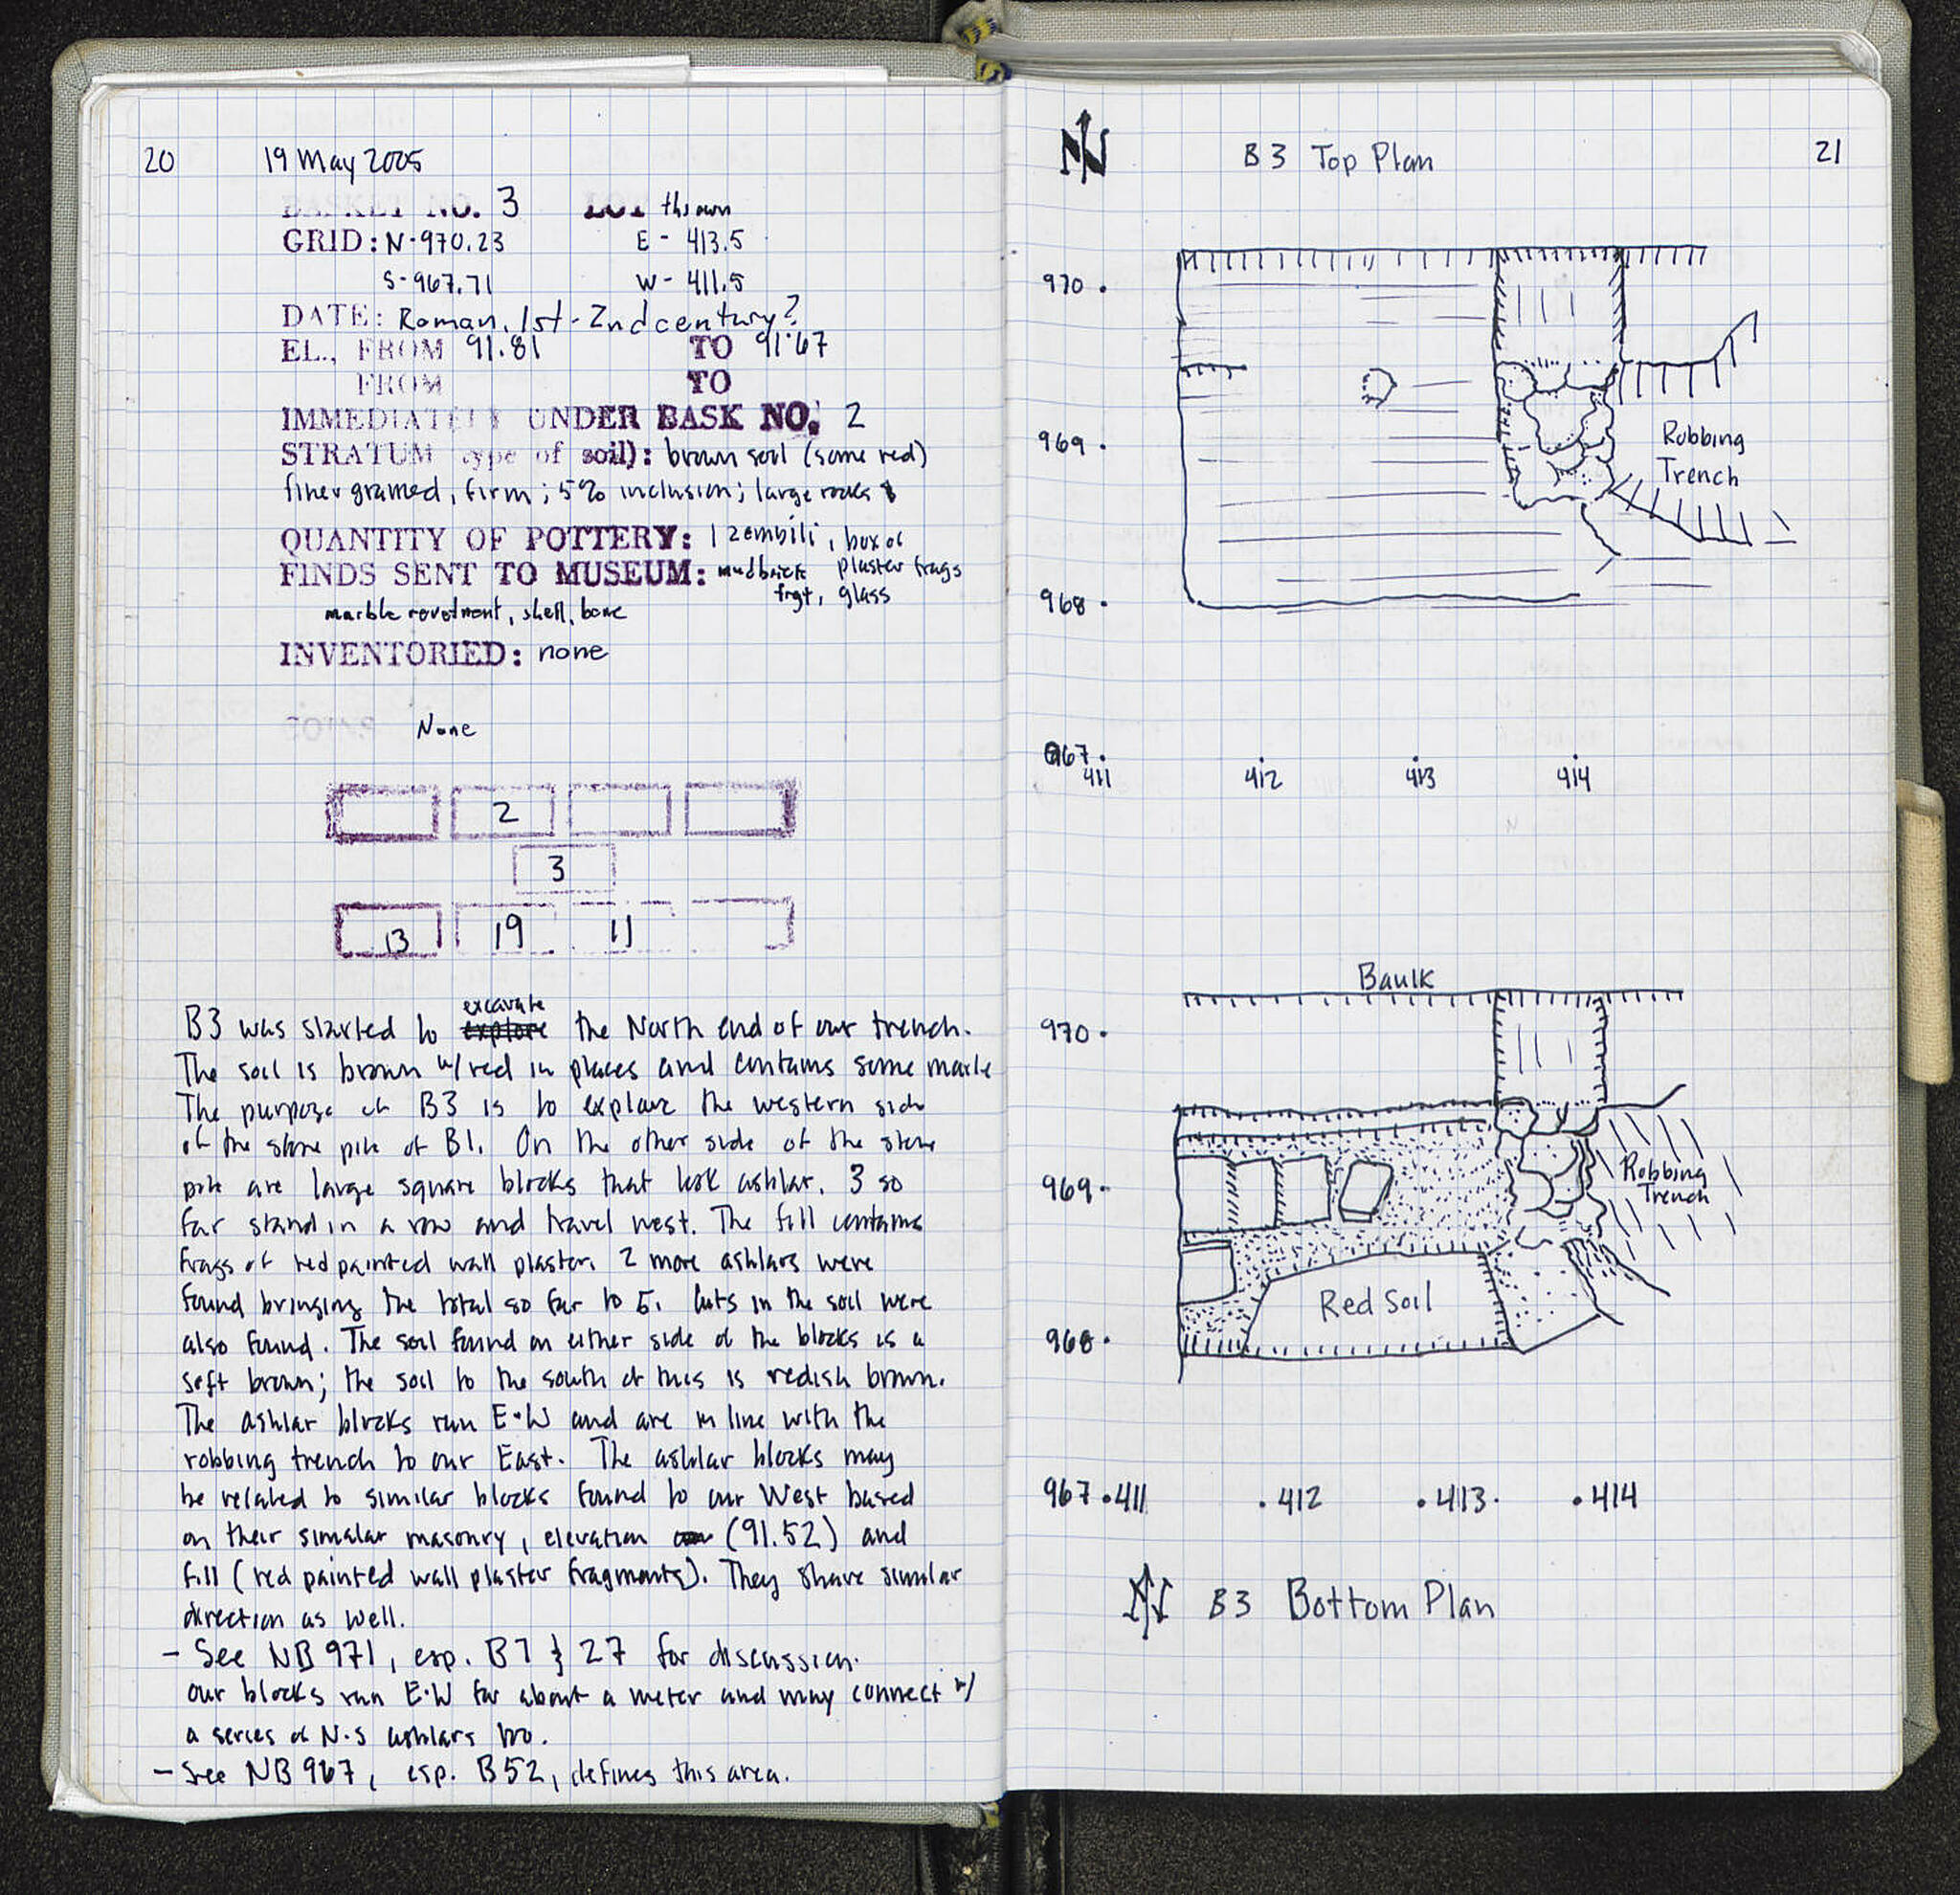 20 19 May 2005
BASKET NO. 3 LOT thrown
GRID: N-970.23 E - 413.5
S-967.71 W- 411.5
DATE: Roman, 1st-2nd century?
EL., FROM 91.81 TO 91.67
FROM TO
IMMEDIATELY UNDER BASK NO. 2
STRATUM (type of soil): brown soil (some red)
finer grained, firm; 5% inclusion; large rocks
QUANTITY OF POTTERY: 1 zembili, box of
FINDS SENT TO MUSEUM: mudbrick plaster frags
frgt, glass
marble revetment, shell, bone
INVENTORIED: none
None
2
3
13 19 11
excavate
B3 was started to explore the North end of our trench.
The soil is brown w/red in places and contains some marble
The purpose of B3 is to explore the western side
of the stone pile of B1. On the other side of the stone
pile are large square blocks that look ashlar. 3 so
far stand in a row and travel west. The fill contains
frags of red painted wall plaster. 2 more ashlars were
found bringing the total so far to 5. Cuts in the soil were
also found. The soil found on either side of the blocks is a
soft brown; the soil to the south of this is redish brown.
The ashlar blocks run E-W and are in line with the
robbing trench to our East. The ashlar blocks may
be related to similar blocks found to our West based
on their simalar masonry, elevation (91.52) and
fill (red painted wall plaster fragments). They share similar
direction as well.
- See NB 971, esp. B7 & 27 for discussion.
our blocks run E-W for about a meter and may connect w/
a series of N-S ashlars too.
- See NB 967, esp. B52, defines this area.
N B3 Top Plan 21
970
969
Robbing
Trench
968
967
411 412 413 414
Baulk
970
969
Robbing
Trench
Red Soil
968
967 411 412 413 414
N B3 Bottom Plan